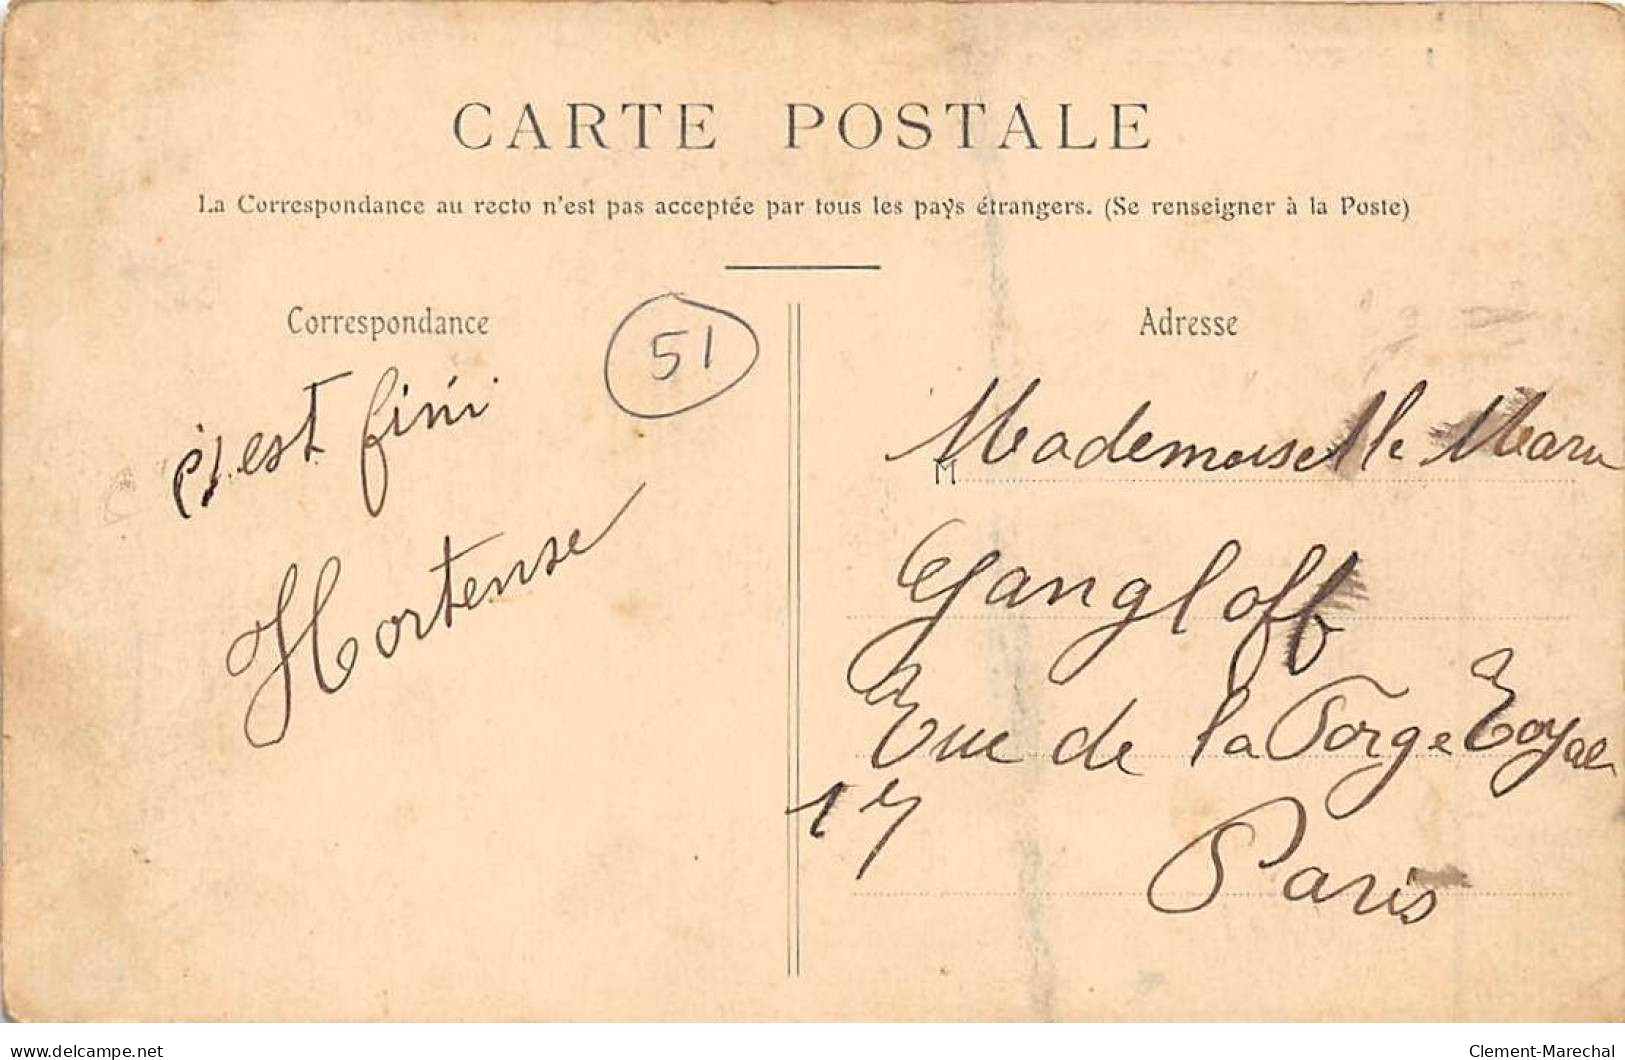 CARTE POSTALE
La Correspondance au recto n'est pas acceptée par tous les pays étrangers. (Se renseigner à la Poste)
Correspondance
51
c'est fini
Hortense
Adresse
Mademoiselle
M
Gangloff
Rue de la Forge Royale
17
Paris
delcampe.net
Clement-Marechal